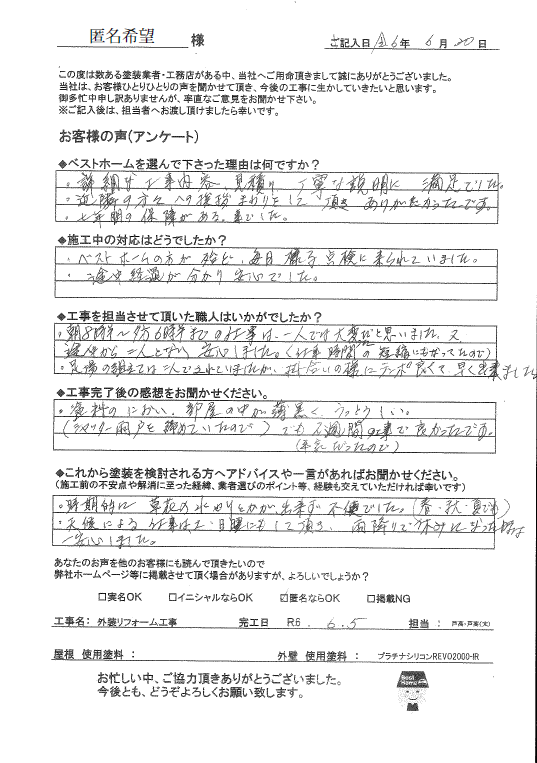 匿名希望 様
ご記入日 令6年 6月 20日
この度は数ある塗装業者・工務店がある中、当社へご用命頂きまして誠にありがとうございました。
当社は、お客様ひとりひとりの声を聞かせて頂き、今後の工事に生かしていきたいと思います。
御多忙中申し訳ありませんが、率直なご意見をお聞かせ下さい。
※ご記入後は、担当者へお渡し頂けましたら幸いです。
お客様の声(アンケート)
◆ベストホームを選んで下さった理由は何ですか？
・詳細な工事内容、見積り、丁寧な説明に満足でした。
・近隣の方々への挨拶まわりをして頂き ありがたかったです。
・七年間の保障がある事でした。
◆施工中の対応はどうでしたか？
・ベストホームの方が殆ど、毎日様子点検に来られていました。
・途中経過が分かり安心でした。
◆工事を担当させて頂いた職人はいかがでしたか？
・朝8時半～夕方6時半までの仕事は、一人では大変だと思いました。又
途中から二人となり 安心しました。(仕事時間の短縮にもなったので)
・足場の組立ては二人でされていましたが、掛け合いの様にテンポ良くて、早く出来ました
◆工事完了後の感想をお聞かせください。
・塗料のにおい、部屋の中が薄黒く、うっとうしい。
(シャッター雨戸を締めていたので) でも 週間の工事で良かったです。
◆これから塗装を検討される方へアドバイスや一言があればお聞かせください。
(施工前の不安点や解消に至った経緯、業者選びのポイント等、経験も交えていただければ幸いです)
・時期的に 草花の水やりとかが、出来ず不便でした。(春・秋・夏でも)
・天候による仕事は土・日曜にもして頂き、雨降りで休みになった時は
安心しました。
あなたのお声を他のお客様にも読んで頂きたいので
弊社ホームページ等に掲載させて頂く場合がありますが、よろしいでしょうか？
□実名OK □イニシャルならOK ☑匿名ならOK □掲載NG
工事名： 外装リフォーム工事 完工日 R6 . 6.5 担当： 戸高・戸高(太)
屋根 使用塗料： 外壁 使用塗料： プラチナシリコンREVO2000-IR
お忙しい中、ご協力頂きありがとうございました。
今後とも、どうぞよろしくお願い致します。
Best Home